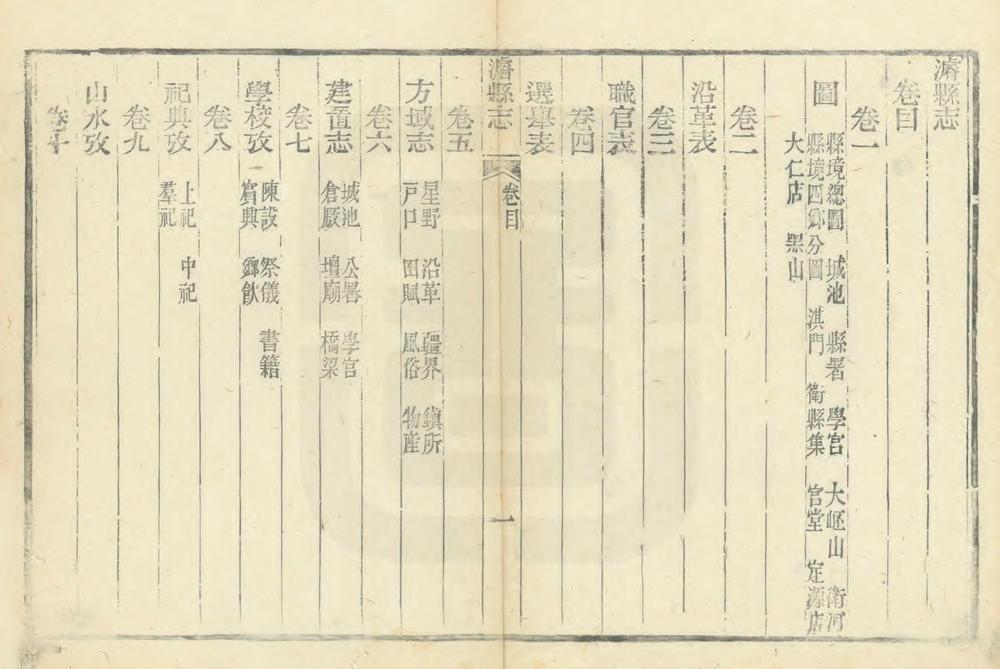 濬縣志
卷目
卷一
圖
縣境總圖 城池 縣署 學宮 大伾山 衛河
縣境四鄉分圖 淇門 衛縣集 官堂 定源店
大仁店 黑山
卷二
沿革表
卷三
職官表
卷四
選舉表
濬縣志 卷目 一
卷五
方域志
星野 沿革 疆界 鎮所
戸口 田賦 風俗 物產
卷六
建置志
城池 公署 學宮
倉厫 壇廟 橋梁
卷七
學校攷
陳設 祭儀 書籍
賓興 鄉飲
卷八
祀典攷
上祀 中祀
羣祀
卷九
山水攷
卷十